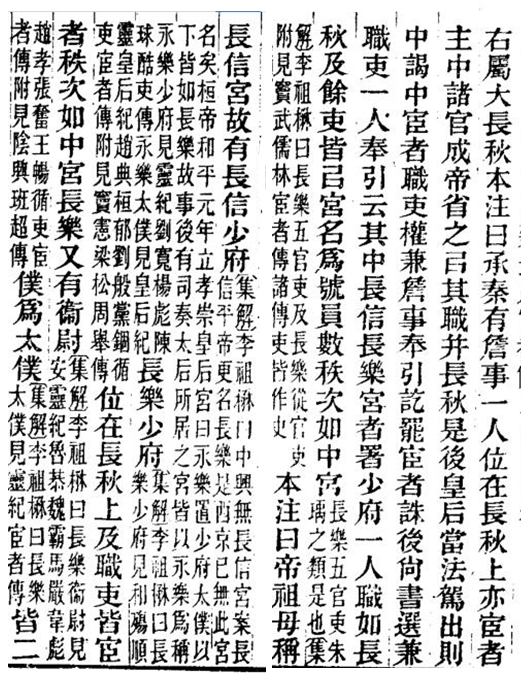 右屬大長秋本注曰承秦有詹事一人位在長秋上亦宦者
主中諸官成帝省之㠯其職并長秋是後皇后當法駕出則
中謁中宦者職吏權兼詹事奉引訖罷宦者誅後尚書選兼
職吏一人奉引云其中長信長樂宮者署少府一人職如長
秋及餘吏皆㠯宮名爲號員數秩次如中宮
長樂五官吏朱
瑀之類是也集
解李祖楙曰長樂五官吏及長樂從官吏
附見竇武儒林宦者傳諸傳吏皆作史
本注曰帝祖母稱
長信宮故有長信少府
集解李祖楙曰中興無長信宮案長
信平帝更名長樂是西京已無此宮
名矣桓帝和平元年立孝崇皇后宮曰永樂置少府太僕以
下皆如長樂故事後有司奏太后所居之宮皆以永樂爲稱
永樂少府見靈紀劉寬楊彪陳
球酷吏傳永樂太僕見皇后紀
長樂少府
集解李祖楙曰長
樂少府見和殤順
靈皇后紀趙典桓郁劉般黨錮循
吏宦者傳附見竇憲梁松周舉傳
位在長秋上及職吏皆宦
者秩次如中宮長樂又有衞尉
集解李祖楙曰長樂衞尉見
安靈紀魯恭魏霸馬嚴韋彪
趙孝張奮王暢循吏宦
者傳附見陰興班超傳
僕爲太僕
集解李祖楙曰長樂
太僕見靈紀宦者傳
皆二